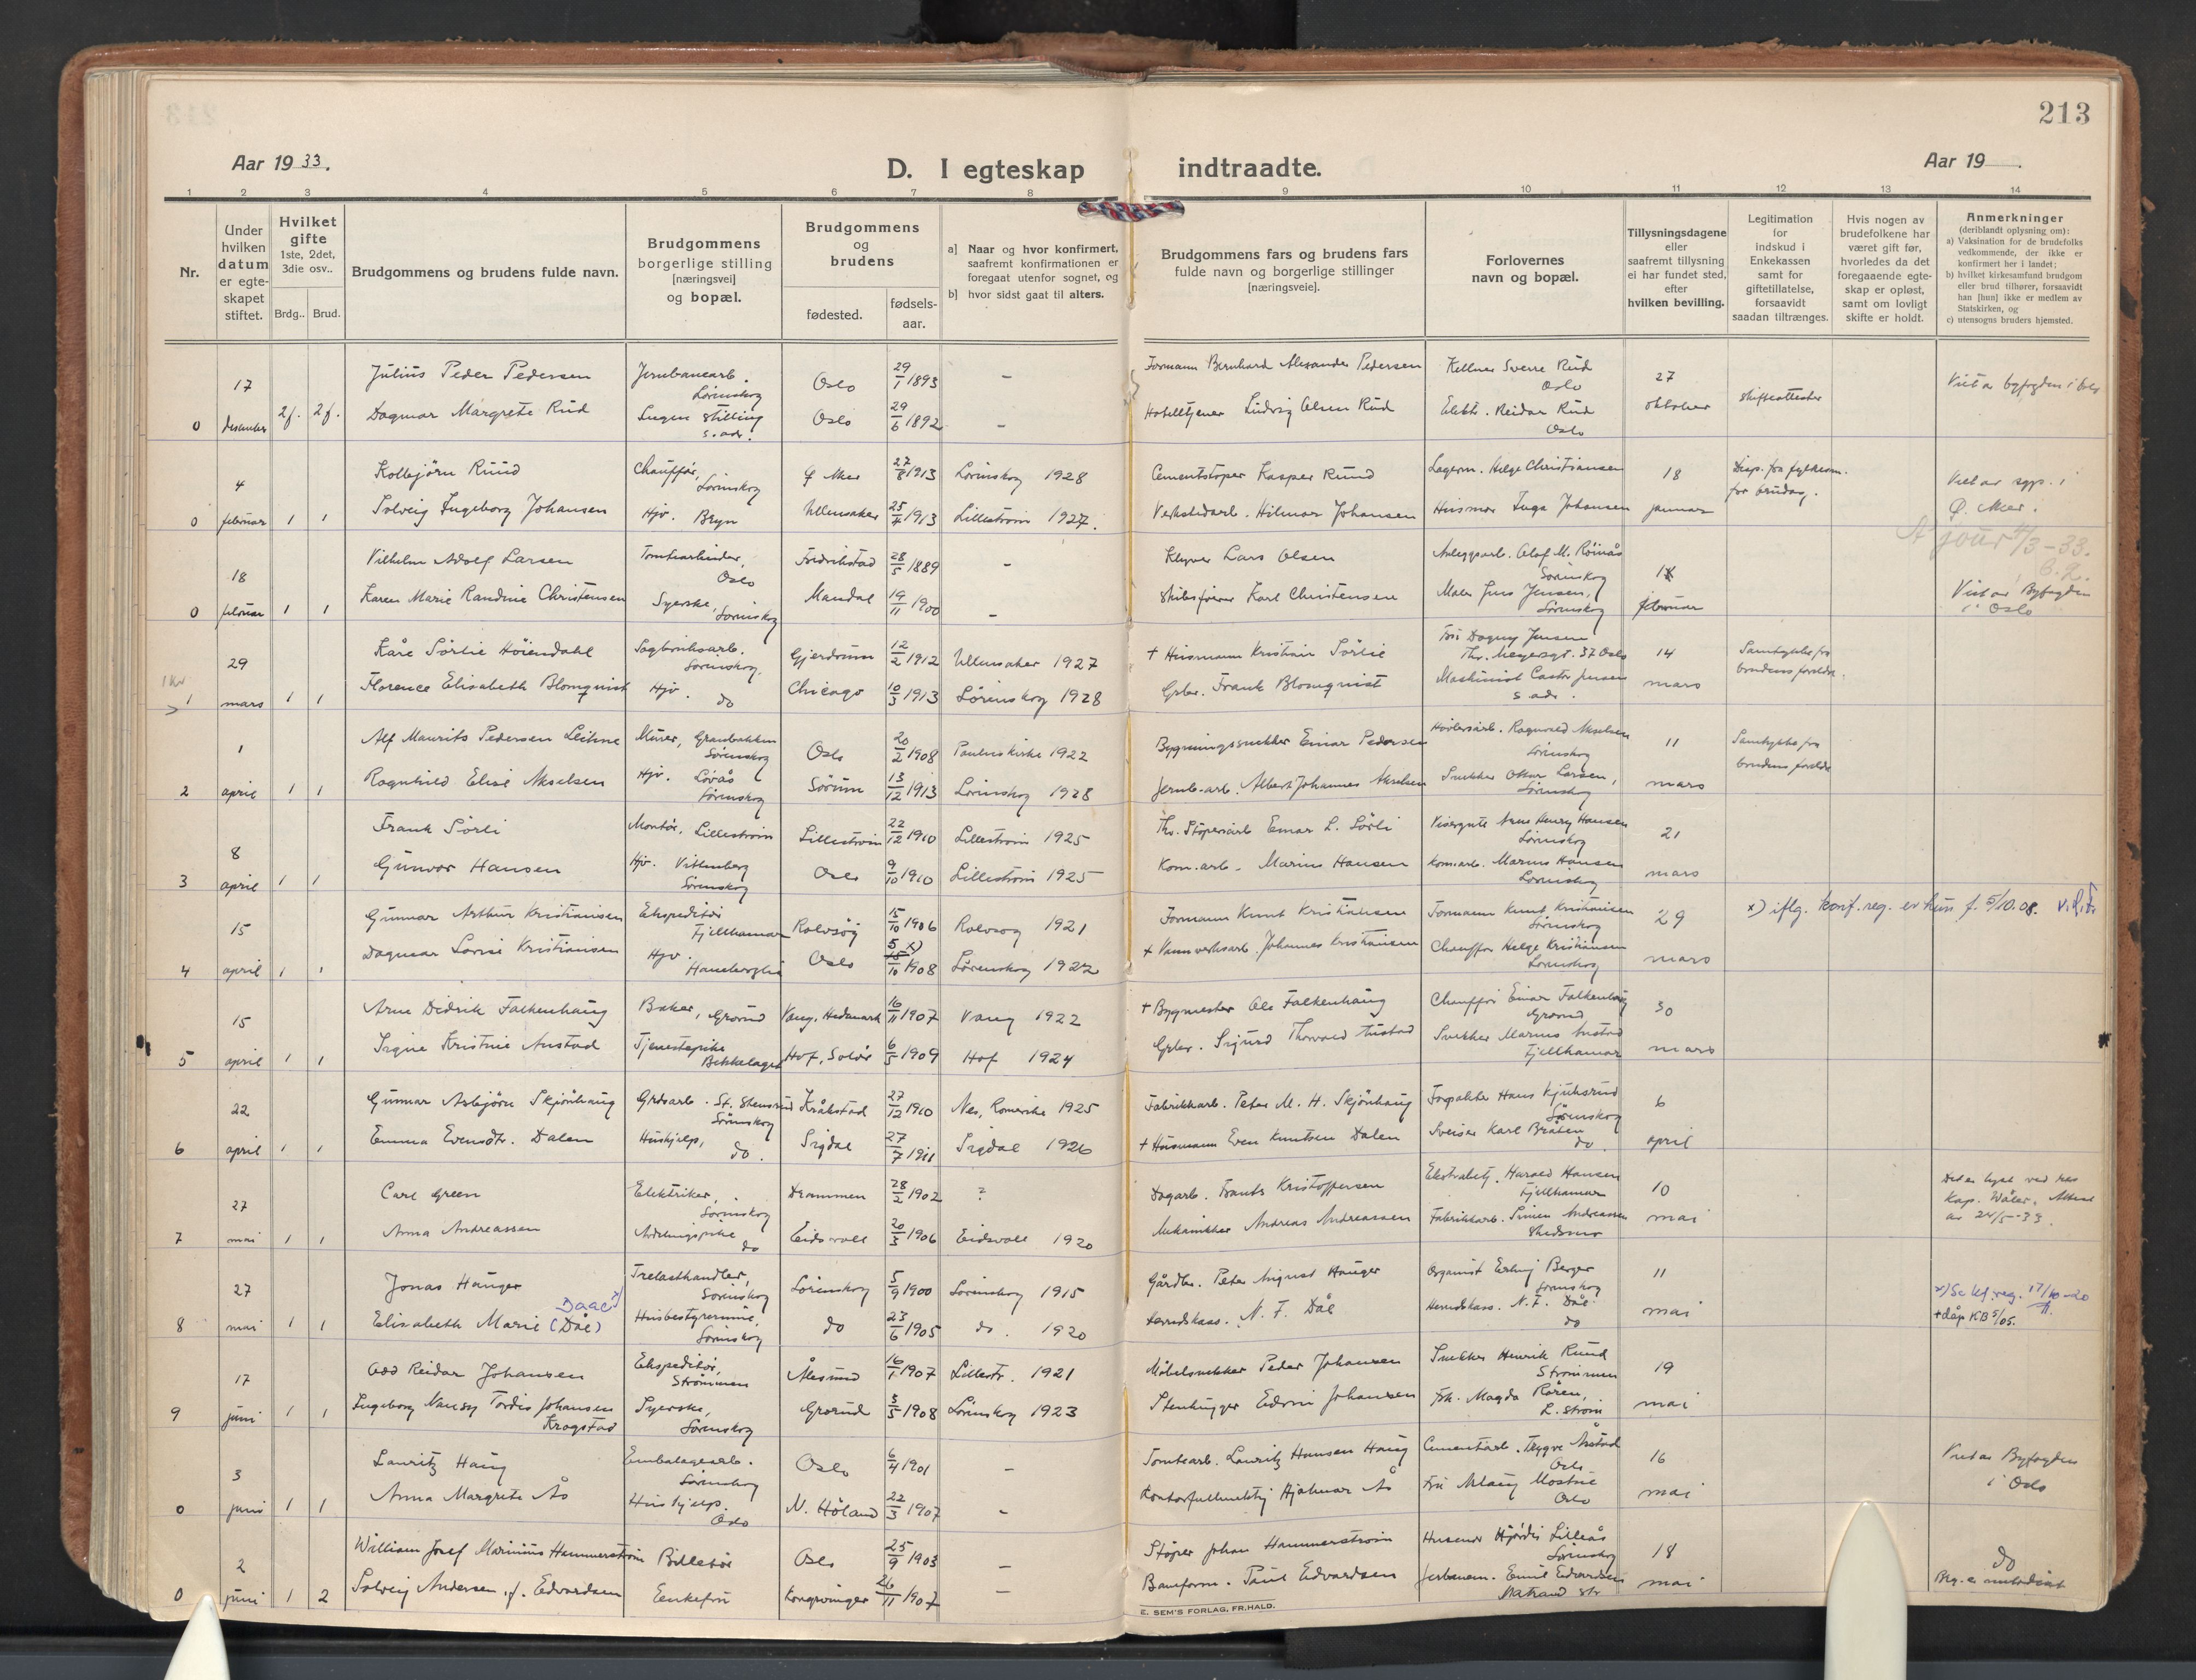 213
Aar 19 33.
D. I egteskap indtraadte.
Aar 19
1 2 3 4 5 6 7 8 9 10 11 12 13 14
Nr.
Under hvilken datum er egteskapet stiftet.
Hvilket gifte 1ste, 2det, 3die osv..
Brdg.. Brud.
Brudgommens og brudens fulde navn.
Brudgommens borgerlige stilling [næringsvei] og bopæl.
Brudgommens og brudens
fødested.
fødsels-aar.
a] Naar og hvor konfirmert, saafremt konfirmationen er foregaat utenfor sognet, og
b] hvor sidst gaat til alters.
Brudgommens fars og brudens fars fulde navn og borgerlige stillinger [næringsveie].
Forlovernes navn og bopæl.
Tillysningsdagene eller saafremt tillysning ei har fundet sted, efter hvilken bevilling.
Legitimation for indskud i Enkekassen samt for giftetillatelse, forsaavidt saadan tiltrænges.
Hvis nogen av brudefolkene har været gift før, hvorledes da det foregaaende egteskap er opløst, samt om lovligt skifte er holdt.
Anmerkninger (deriblandt oplysning om):
a) Vaksination for de brudefolks vedkommende, der ikke er konfirmert her i landet;
b) hvilket kirkesamfund brudgom eller brud tilhører, forsaavidt han [hun] ikke er medlem av Statskirken, og
c) utensogns bruders hjemsted.
17 Julius Peder Pedersen Jernbanearb. Lørenskog Oslo 29/1 1893 - Formann Bernhard Alexander Pedersen Kellner Sverre Rud Oslo 27
0 desember 2f. 2f. Dagmar Margrete Rud Ingen stilling s. adr. Oslo 29/6 1892 - Hotelltjener Ludvig Olsen Rud Elektr. Reidar Rud Oslo oktober skifteattester
Viet av byfogden i Oslo
4 Kolbjørn Ruud Chauffør, Lørenskog Ø Aker 27/8 1913 Lørenskog 1928 Cementstøper Kasper Ruud Lagerm. Helge Christiansen 18
0 februar 1 1 Solveig Ingeborg Johansen Hjv. Bryn Ullensaker 25/7 1913 Lillestrøm 1927. Verkstedarb. Hilmar Johansen Husmor Inga Johansen januar
Disp. fra fylkesm. for brudg.
Viet av sgp. i Ø. Aker.
A jour 4/3-33.
18 Vilhelm Adolf Larsen Tomtearbeider, Oslo Fredrikstad 28/5 1889 - Kløyver Lars Olsen Anleggsarb. Olaf M. Röinås Lørenskog
0 februar 1 1 Karen Marie Randine Christensen Syerske, Lørenskog Mandal 19/11 1900 - Skibsfører Karl Christensen Maler Jens Jensen, Lørenskog februar
Viet av Byfogden i Oslo
29 Kåre Sörlie Höiendahl Sagbruksarb. Lørenskog, Gjerdrum 12/2 1912 Ullensaker 1927 + Husmann Kristian Sörlie Frü Dagny Jensen Thv. Meyersgt. 37 Oslo 14
1 mars 1 1 Florence Elisabeth Blomquist Hjv. do Chicago 10/3 1913 Lørenskog 1928 Grbr. Frank Blomquist Maskinist Castor Jensen s. adr. mars
Samtykke fra brudens foreldre.
1 Alf Maurits Pedersen Leikne Murer, Granbakken Lørenskog Oslo 20/2 1908 Paulus kirke 1922 Bygningssnekker Einar Pedersen Høvleriarb. Ragnvald Akselsen Lørenskog 11
2 april 1 1 Ragnhild Elise Akselsen Hjv. Løvås Lørenskog Sørum 13/12 1913 Lørenskog 1928 Jernb.arb. Albert Johannes Akselsen Snekker Oskar Larsen, Lørenskog mars
Samtykke fra brudens foreldre
8 Frank Sörli Montør, Lillestrøm Lillestrøm 22/12 1910 Lillestrøm 1925 Einar L. Sörli Visergutt Arne Henry Hansen Lørenskog 21
3 april 1 1 Gunvor Hansen Hjv. Vittenberg Lørenskog Oslo 9/10 1910 Lillestrøm 1925 Kom.arb. Marius Hansen Kom.arb. Marius Hansen Lørenskog mars
15 Gunnar Arthur Kristiansen Ekspeditør Fjellhamar Rolvsøy 15/10 1906 Rolvsøy 1921 Formann Knut Kristiansen Formann Knut Kristiansen Lørenskog 29
4 april 1 1 Dagmar Lovise Kristiansen Hjv. Haneborglia Oslo 5 x) 15/10 1908 Lørenskog 1922 + Vannverksarb. Johannes Kristiansen Chauffør Helge Kristiansen Lørenskog mars
x) iflg. konf. reg. er hun f. 5/10.08.
15 Arne Didrik Falkenhaug Baker, Grorud Vang, Hedmark 16/11 1907 Vang 1922 + Bygmester Ole Falkenhaug Chauffør Einar Falkenhaug Grorud 30
5 april 1 1 Signe Kristine Austad Tjenestepike Bekkelaget Hof, Solør 6/5 1909 Hof 1924 Grbr. Sigurd Thorvald Austad Snekker Marius Austad Fjellhamar mars
22 Gunnar Asbjörn Skjönhaug Grdsarb. St. Stensrud Lørenskog Kråkstad 27/12 1910 Nes, Romerike 1925 Fabrikkarb. Peter M. H. Skjönhaug Forpakter Hans Kjuksrud Lørenskog 6
6 april 1 1 Emma Evensdtr. Dalen Hushjelp, do. Sigdal 27/7 1911 Sigdal 1926 + Husmann Even Knutsen Dalen Sveiser Karl Bråten do april
27 Carl Green Elektriker, Lørenskog Drammen 28/2 1902 ? Dagarb. Frants Kristoffersen Ekstrabetj. Harald Hansen Fjellhamar 10
7 mai 1 1 Anna Andreassen Avdelingspike do Eidsvoll 20/3 1906 Eidsvoll 1920 Mekanikker Andreas Andreassen Fabrikkarb. Simen Andreassen Skedsmo mai
Det er lyst ved res kap. Wåler. Attest av 24/5-33.
27 Jonas Hauger Trelasthandler, Lørenskog Lørenskog 5/9 1900 Lørenskog 1915 Gårdbr. Peter August Hauger Organist Erling Berger Lørenskog 11
8 mai 1 1 Elisabeth Marie (Dåe) Daae x) Husbestyrerinne, Lørenskog do 23/6 1905 do. 1920 Herredskass. N. F. Dåe Herredskass. N. F. Dåe do mai
x) Se kf. reg. 17/10-20 + dåp KB 5/05.
17 Odd Reidar Johansen Ekspeditør, Strømmen Ålesund 16/1 1907 Lillestr. 1921 Møbelsnekker Peder Johansen Snekker Henrik Ruud Strømmen 19
9 juni 1 1 Ingeborg Nancy Tordis Johansen Krogstad Syerske, Lørenskog Grorud 5/5 1908 Lørenskog 1923 Stenhugger Edvin Johansen Frk. Magda Røren, L.strøm mai
3 Lauritz Haug Embalagearb. Lørenskog Oslo 6/4 1901 - Tomtearb. Lauritz Hansen Haug Cementarb. Trygve Åstad Oslo 16
0 juni 1 1 Anna Margrete Ås Hushjelp. Oslo N. Höland 22/3 1907 - Kontorfullmektig Hjalmar Ås Frü Aslaug Mostue Oslo mai
Viet av Byfogden i Oslo
2 William Josef Marinius Hammerstrøm Billetør Oslo 25/9 1903 - Støper Johan Hammerstrøm Husmor Hjördis Lilleås Lørenskog 18
0 juni 1 2 Solveig Andersen f. Edvardsen Enkefru Kongsvinger 26/11 1907 - Baneform. Paul Edvardsen Jernbanem. Emil Edvardsen Matrand st. mai
do
Brg. er metodist
E. SEM'S FORLAG, FR.HALD.